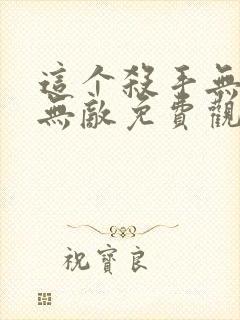 這个殺手無
無敵免費觀
祝寶良